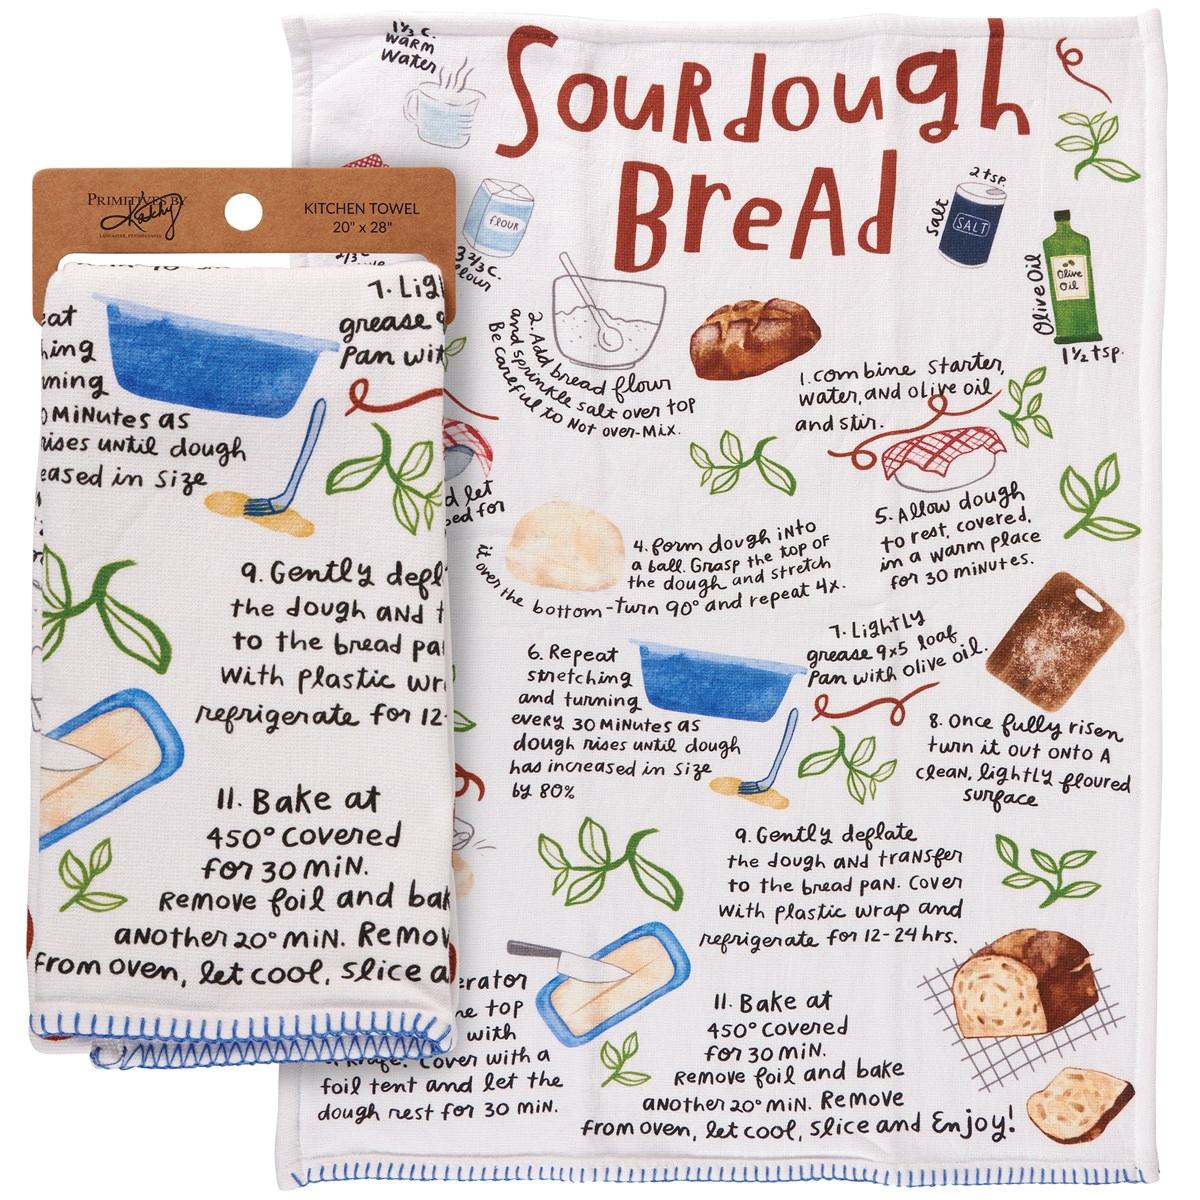 1⅓ C.
warm
Water
Sourdough
Bread
2 tsp.
Salt
SALT
FLOUR
3 2/3 C.
flour
Olive Oil
Olive
Oil
1½ tsp.
PRIMITIVES BY
Kathy
LANCASTER, PENNSYLVANIA
KITCHEN TOWEL
20" x 28"
2/3 C.
1. Combine starter,
water, and olive oil
and stir.
2. Add bread flour
and sprinkle salt over top
Be careful to Not over-Mix.
d let
ped for
4. form dough into
a ball. Grasp the top of
the dough and stretch
it over the bottom-turn 90° and repeat 4x.
5. Allow dough
to rest, covered,
in a warm place
for 30 minutes.
6. Repeat
stretching
and turning
every 30 Minutes as
dough rises until dough
has increased in size
by 80%
7. Lightly
grease 9x5 loaf
pan with olive oil.
8. Once fully risen
turn it out onto a
clean, lightly floured
surface
9. Gently deflate
the dough and transfer
to the bread pan. Cover
with plastic wrap and
refrigerate for 12-24 hrs.
erator
he top
with
knife. Cover with a
foil tent and let the
dough rest for 30 min.
11. Bake at
450° covered
for 30 min.
Remove foil and bake
another 20° min. Remove
from oven, let cool, slice and Enjoy!
7. Ligh
grease 9
Pan wit
eat
hing
rning
0 Minutes as
rises until dough
eased in size
9. Gently defl
the dough and t
to the bread pa
with plastic wr
refrigerate for 12-
11. Bake at
450° covered
for 30 min.
Remove foil and bak
another 20° min. Remov
from oven, let cool, slice a